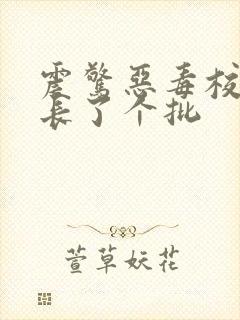 震惊恶毒校
长了个批
萱草妖花